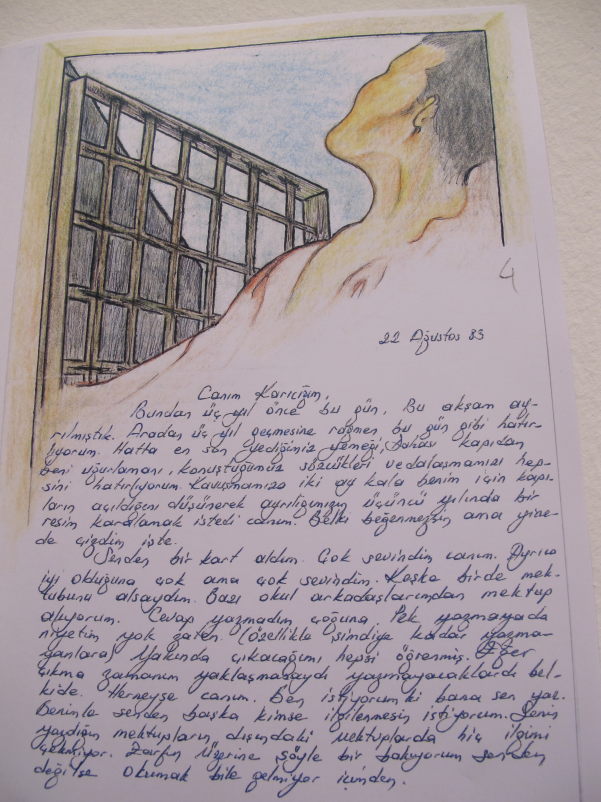 4
22 Ağustos 83
Canım Karıcığım,
Bundan üç yıl önce bu gün, Bu akşam ay-
rılmıştık. Aradan üç yıl geçmesine rağmen bu gün gibi hatır-
lıyorum. Hatta en son yediğimiz yemeği, kapıdan
beni uğurlamanı, konuştuğumuz sözcükleri vedalaşmamızı hep-
sini hatırlıyorum. Kavuşmamıza iki ay kala benim için kapı-
ların açıldığını düşünerek ayrılığımızın üçüncü yılında bir
resim karalamak istedi canım. Belki beğenmezsin ama yine-
de çizdim işte.
Senden bir kart aldım. Çok sevindim canım. Ayrıca
iyi olduğuna çok ama çok sevindim. Keşke birde mek-
tubunu alsaydım. Bazı okul arkadaşlarımdan mektup
alıyorum. Cevap yazmadım çoğuna. Pek yazmayada
niyetim yok zaten. (özellikle şimdiye kadar yazma-
yanlara) Yakında çıkacağımı hepsi öğrenmiş. Eğer
çıkma zamanım yaklaşmasaydı yazmayacaklardı bel-
kide. Herneyse canım. Ben istiyorumki bana sen yaz.
Benimle senden başka kimse ilgilenmesin istiyorum. Senin
yazdığın mektupların dışındaki mektuplarda hiç ilgimi
çekmiyor. Zarfın üzerine şöyle bir bakıyorum senden
değilse okumak bile gelmiyor içimden.